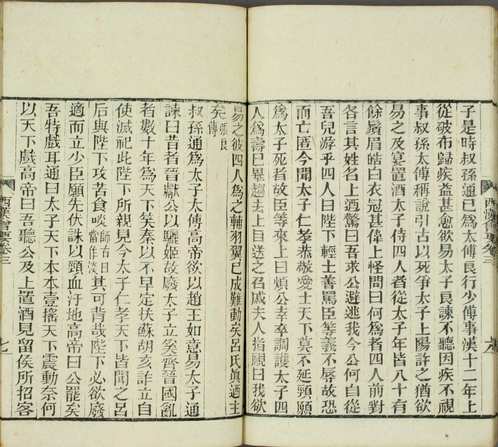 子是時叔孫通已爲太傅良行少傅事漢十二年上
從破布歸疾益甚愈欲易太子良諫不聽因疾不視
事叔孫太傅稱說引古以死爭太子上陽許之猶欲
易之及宴置酒太子侍四人者從太子年皆八十有
餘鬚眉皓白衣冠甚偉上怪問曰何爲者四人前對
各言其姓名上迺驚曰吾求公避逃我今公何自從
吾兒游乎四人曰陛下輕士善罵臣等義不辱故恐
而亡匿今聞太子仁孝恭敬愛士天下莫不延頸願
爲太子死者故臣等來上曰煩公幸卒調護太子四
人爲壽已畢趨去上目送之召戚夫人指視曰我欲
西漢會要卷三
易之彼四人爲之輔羽翼已成難動矣呂氏眞迺主
矣張良傳
叔孫通爲太子太傅高帝欲以趙王如意易太子通
諫曰昔者晉獻公以驪姬故廢太子立奚齊晉國亂
者數十年爲天下笑秦以不早定扶蘇胡亥詐立自
使滅祀此陛下所親見今太子仁孝天下皆聞之呂
后與陛下攻苦食啖師古曰啖當作淡其可背哉陛下必欲廢
適而立少臣願先伏誅以頸血汙地高帝曰公罷矣
吾特戲耳通曰太子天下本本壹搖天下震動奈何
以天下戲高帝曰吾聽公及上置酒見留侯所招客
西漢會要卷三
七